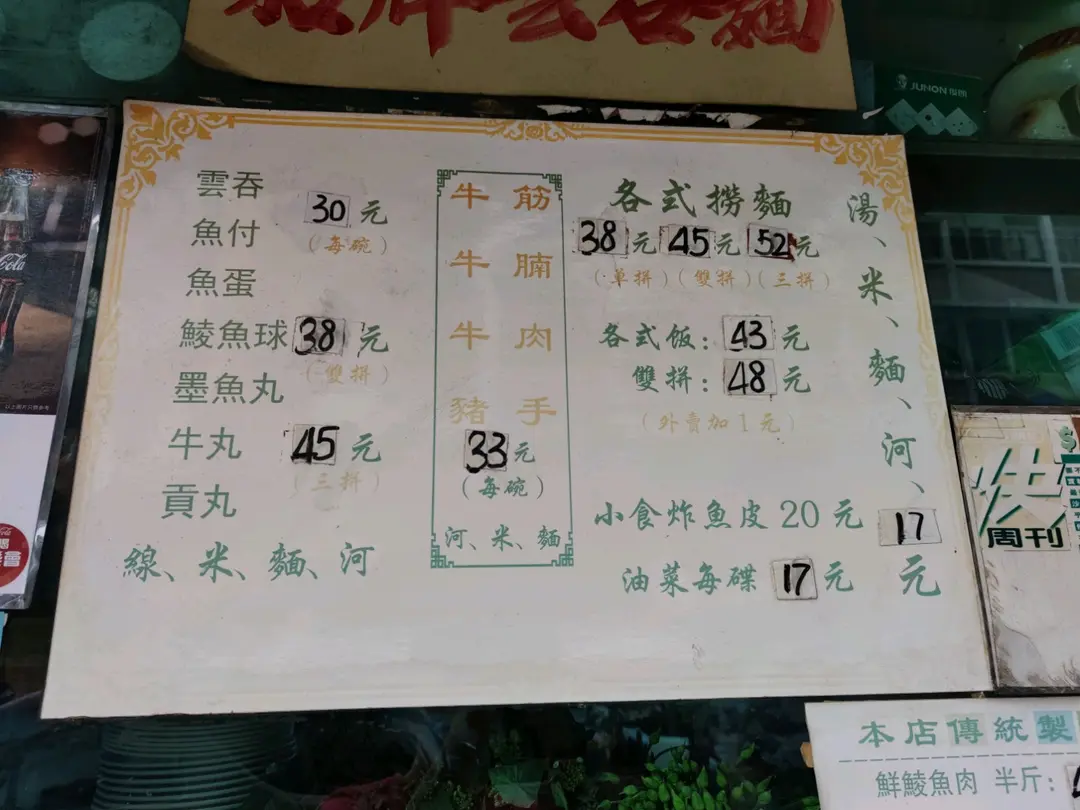 招牌雲吞麵
JUNON
雲吞
魚付
30元
(每碗)
魚蛋
鯪魚球
38元
(雙拼)
墨魚丸
牛丸
45元
(三拼)
貢丸
線、米、麵、河
牛筋
牛腩
牛肉
豬手
33元
(每碗)
河、米、麵
各式撈麵
38元 45元 52元
(单拼)(雙拼)(三拼)
各式饭:43元
雙拼:48元
(外賣加1元)
小食炸魚皮20元
油菜每碟17元
湯、米、麵、河、17元
周刊
本店傳統製
鮮鯪魚肉 半斤: